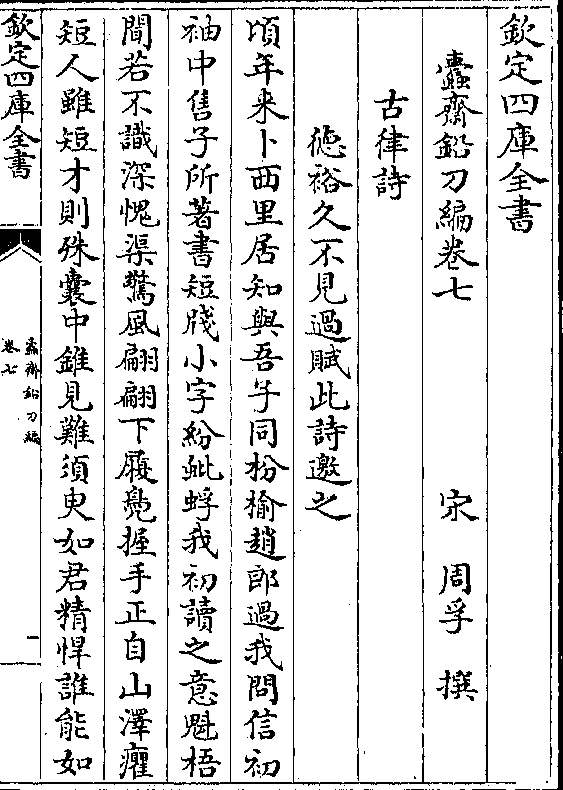 欽定四庫全書
蠹齋鉛刀編卷七
宋 周孚 撰
古律詩
德裕久不見過賦此詩邀之
頃年来卜西里居知與吾子同枌榆趙郎過我問信初
袖中售子所著書短牋小字紛蚍蜉我初讀之意魁梧
間若不識深愧渠驚風翩翩下履鳧握手正自山澤癯
短人雖短才則殊囊中錐見難須臾如君精悍誰能如
欽定四庫全書
蠹齋鉛刀編
卷七
一